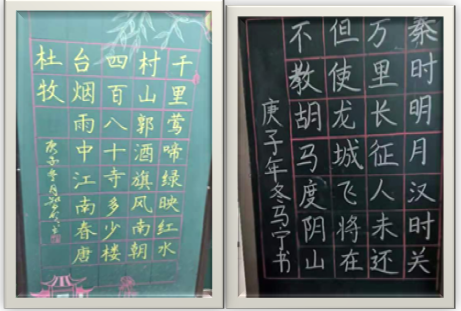 千里莺啼绿映红水
村山郭酒旗风南朝
四百八十寺多少楼
台烟雨中江南春唐
杜牧
秦时明月汉时关
万里长征人未还
但使龙城飞将在
不教胡马度阴山
庚子年冬马宁书